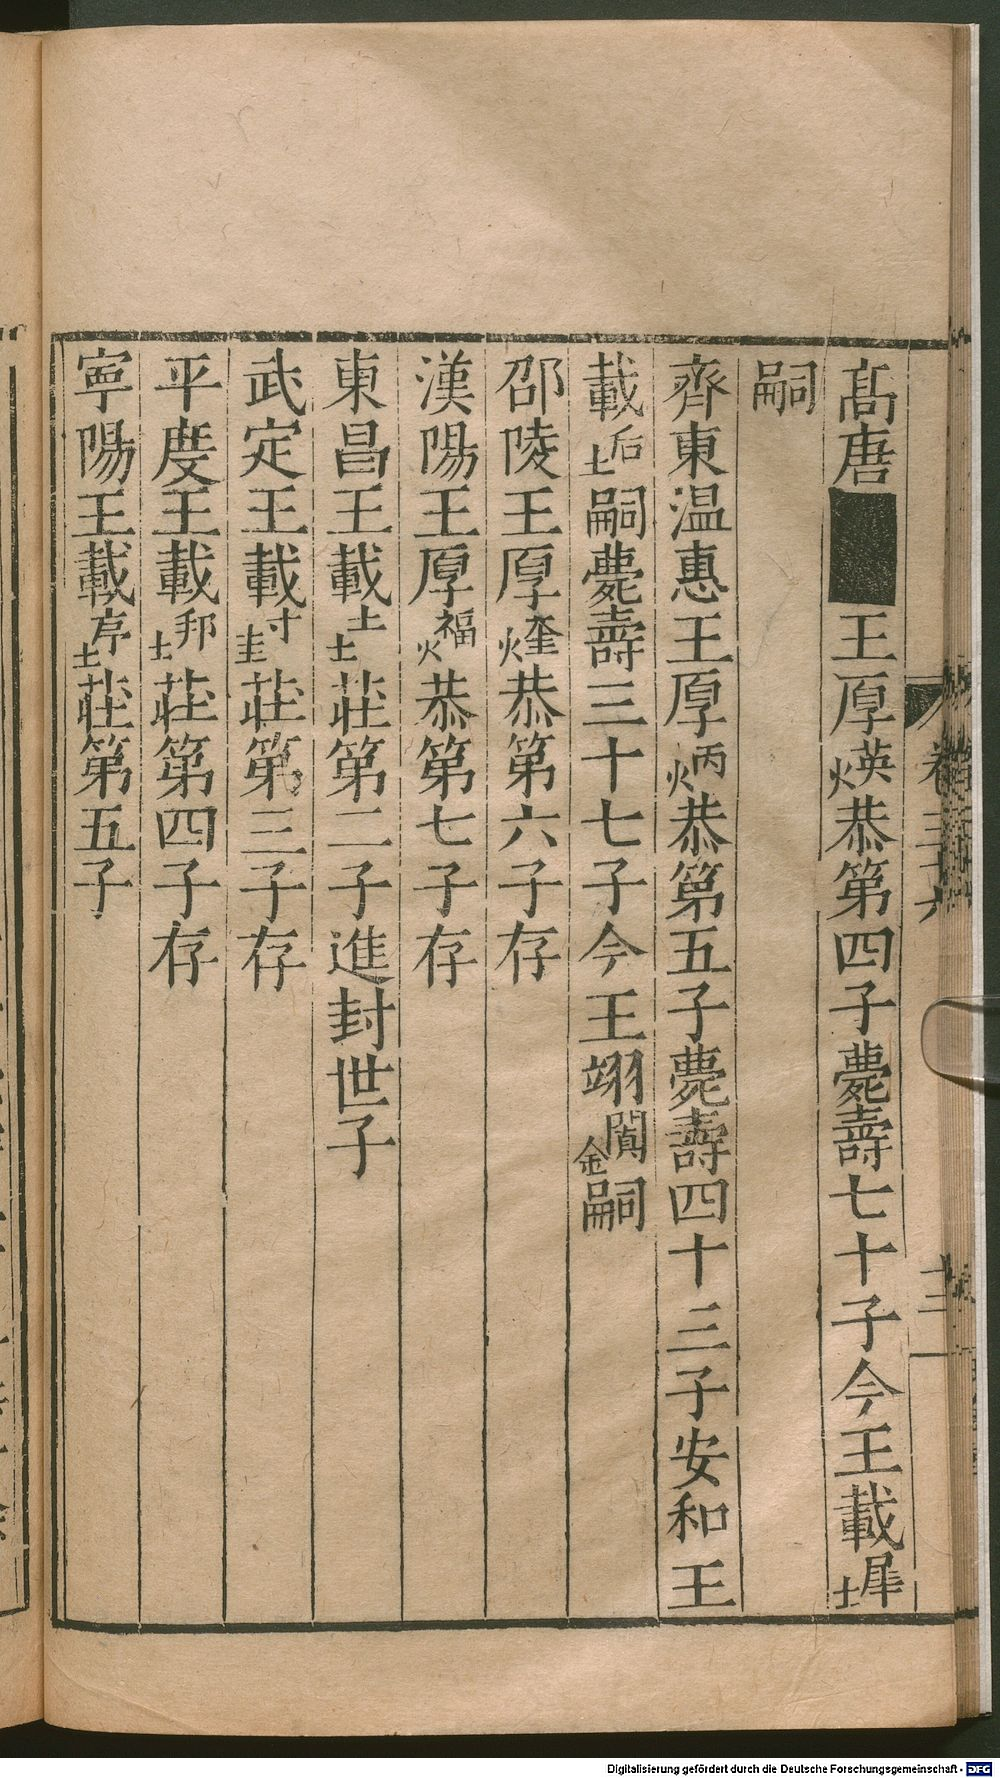 高唐■王厚火英恭第四子薨壽七十子今王載土犀
嗣
齊東温惠王厚火丙恭第五子薨壽四十三子安和王
載土后嗣薨壽三十七子今王翊金闐嗣
邵陵王厚火奎恭第六子存
漢陽王厚火福恭第七子存
東昌王載土上莊第二子進封世子
武定王載圭寸莊第三子存
平度王載土邦莊第四子存
寧陽王載土亭莊第五子
卷三十六
Digitalisierung gefördert durch die Deutsche Forschungsgemeinschaft - DFG